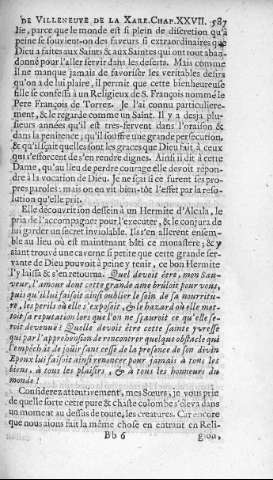 DE VILLENEUVE DE LA XARE. CHAP. XXVII. 587
lie, parce que le monde est si plein de discretion qu'à
peine se souvient-on des faveurs si extraordinaires que
Dieu a faites aux Saints & aux Saintes qui ont tout aban-
donné pour l'aller servir dans les deserts. Mais comme
il ne manque jamais de favoriser les veritables desirs
qu'on a de lui plaire, il permit que cette bienheureuse
fille se confessa à un Religieux de S. François nommé le
Pere François de Torrez. Je l'ai connu particuliere-
ment, & le regarde comme un Saint. Il y a desja plu-
sieurs années qu'il est tres-fervent dans l'oraison &
dans la penitence; qu'il souffre une grande persecution,
& qu'il sçait quelles sont les graces que Dieu fait à ceux
qui s'efforcent de s'en rendre dignes. Ainsi il dit à cette
Dame, qu'au lieu de perdre courage elle devoit répon-
dre à la vocation de Dieu. Je ne sçai si ce furent ses pro-
pres paroles: mais on en vit bien-tôt l'effet par la reso-
lution qu'elle prit.
Elle découvrit son dessein à un Hermite d'Alcala, le
pria de l'accompagner pour l'executer, & le conjura de
lui garder un secret inviolable. Ils s'en allerent ensem-
ble au lieu où est maintenant bâti ce monastere; & y
étant trouvé une caverne si petite que cette grande ser-
vante de Dieu pouvoit à peine y tenir, ce bon Hermite
l'y laissa & s'en retourna. Quel devoit être, mon Sau-
veur, l'amour dont cette grande ame brûloit pour vous,
puis qu'il lui faisoit ainsi oublier le soin de sa nourritu-
re, les perils où elle s'exposoit, & le hazard où elle met-
toit sa reputation lors que l'on ne sçauroit ce qu'elle se-
roit devenuë! Quelle devoit être cette sainte yvresse
qui par l'apprehension de rencontrer quelque obstacle qui
l'empêchât de joüir sans cesse de la presence de son divin
Epoux lui faisoit ainsi renoncer pour jamais à tous les
biens, à tous les plaisirs, & à tous les honneurs du
monde!
Considerez attentivement, mes Sœurs, je vous prie
de quelle sorte cette pure & chaste colombe s'éleva dans
un moment au dessus de toutes les creatures. Car encore
que nous aions fait la même chose en entrant en Reli-
Bb 6 gion,